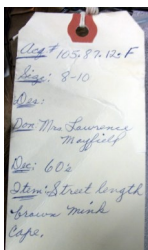 Acq # 105.87.12.F
Size: 8-10
Des:
Don: Mrs Lawrence
Mayfield
Dec: 60s
Item: Street length
brown mink
cape.